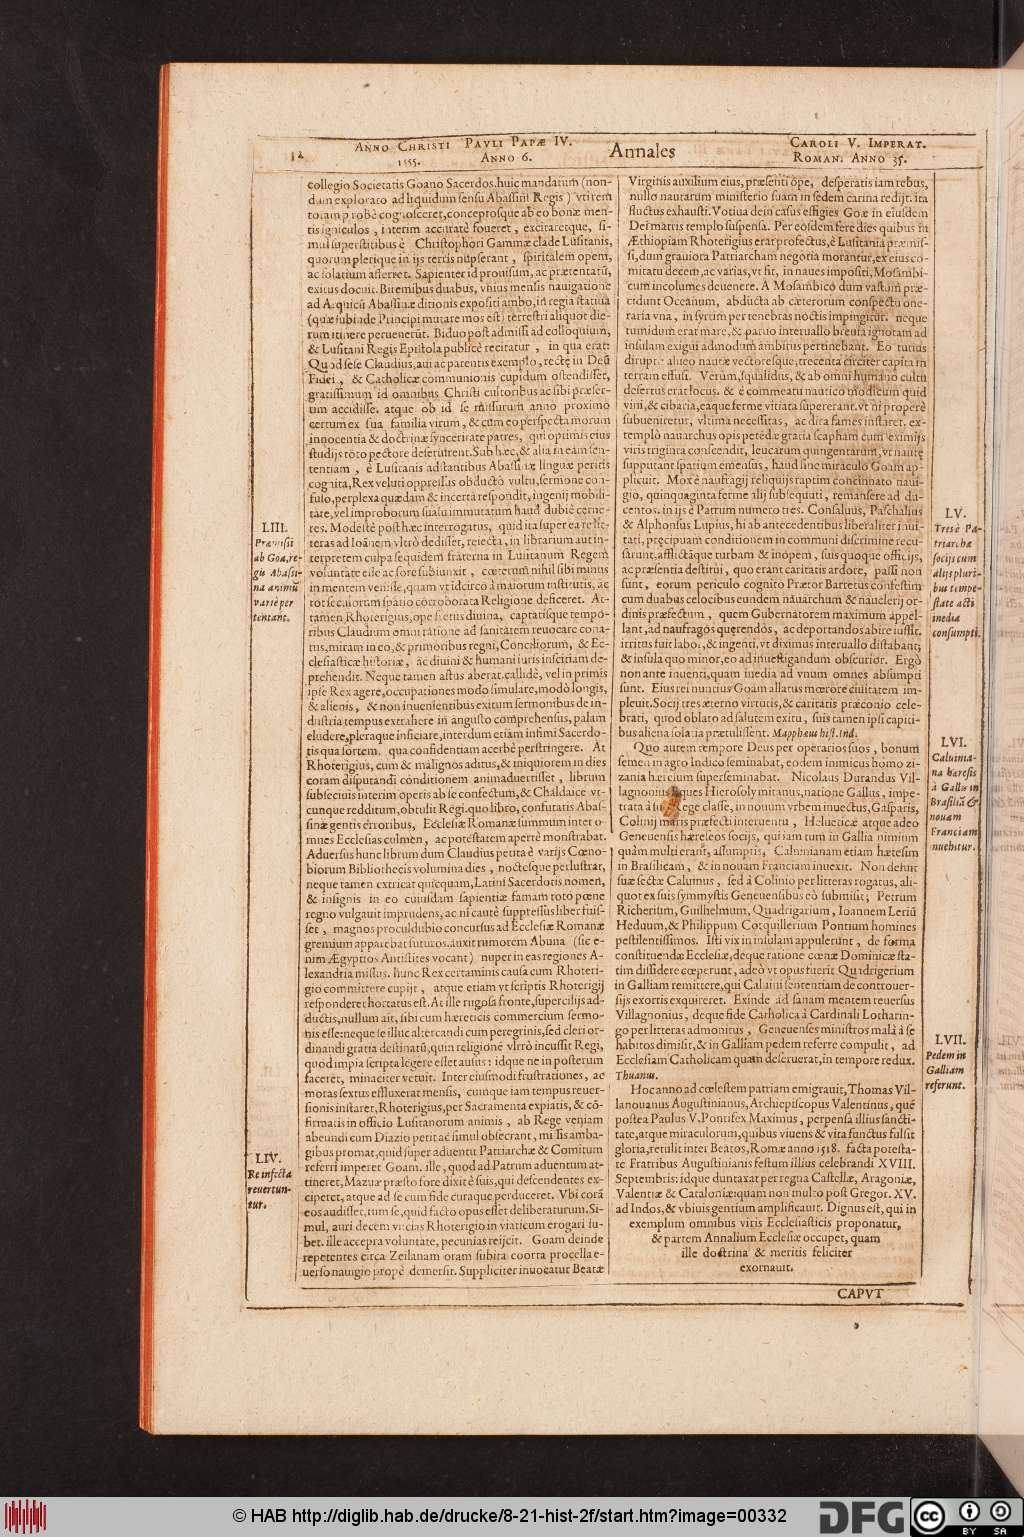 12
ANNO CHRISTI
1555.
PAVLI PAPÆ IV.
ANNO 6.
Annales
CAROLI V. IMPERAT.
ROMAN. ANNO 35.
collegio Societatis Goano Sacerdos. huic mandatum (non-
dum explorato ad liquidum sensu Abassini Regis) vti rem
totam probè cognosceret, conceptosque ab eo bonæ men-
tis igniculos, interim accuratè foueret, excitaretque, si-
mul superstitibus è Christophori Gammæ clade Lusitanis,
quorum plerique in ijs terris nupserant, spiritalem opem,
ac solatium afferret. Sapienter id prouisum, ac prætentatū,
exitus docuit. Bitemibus duabus, vnius mensis nauigatione
ad Arquicū Abassinæ ditionis expositi ambo, in regia statiua
(quæ subinde Principi mutare mos est) terrestri aliquot die-
rum itinere peruenerūt. Biduo post admissi ad colloquium,
& Lusitani Regis Epistola publicè recitatur, in qua erat:
Quod sese Claudius, aui ac parentis exemplo, rectę in Deū
Fidei, & Catholicæ communionis cupidum ostendisset,
gratissimum id omnibus Christi cultoribus ac sibi præser-
tim accidisse. atque ob id se missurum anno proximo
certum ex sua familia virum, & cum eo perspecta morum
innocentia & doctrinæ synceritate patres, qui optimis eius
studijs toto pectore deseruirent. Sub hæc, & alia in eam sen-
tentiam, è Lusitanis adstantibus Abassinæ linguæ peritis
cognita, Rex veluti oppressus obducto vultu, sermone con-
fuso, perplexa quædam & incerta respondit, ingenij mobili-
tate, vel improborum suasu immutatum haud dubiè cerne-
res. Modestè post hæc interrogatus, quid ita super ea re lite-
teras ad Ioānem vltrò dedisset, reiecta, in librarium aut in-
terpretem culpa sequidem fraterna in Lusitanum Regem
voluntate esse ac fore subiunxit, cæterum nihil sibi minus
in mentem venisse, quam vt idcirco à maiorum institutis, ac
tot seculorum spatio corroborata Religione deficeret. At-
tamen Rhoterigius, ope fretus diuina, captatisque tempo-
ribus Claudium omni ratione ad sanitatem reuocare cona-
tus, miram in eo, & primoribus regni, Conciliorum, & Ec-
clesiasticæ historiæ, ac diuini & humani iuris inscitiam de-
prehendit. Neque tamen astus aberat. callidè, vel in primis
ipse Rex agere, occupationes modo simulare, modò longis,
& alienis, & non inuenientibus exitum sermonibus de in-
dustria tempus extrahere in angusto comprehensus, palam
eludere, pleraque inficiare, interdum etiam infimi Sacerdo-
tis qua sortem, qua confidentiam acerbè perstringere. At
Rhoterigius, cum & malignos aditus, & iniquiorem in dies
coram disputandi conditionem animaduertisset, librum
subseciuis interim operis ab se confectum, & Chaldaice vt-
cunque redditum, obtulit Regi. quo libro, confutatis Abas-
sinæ gentis erroribus, Ecclesiæ Romanæ summum inter o-
mnes Ecclesias culmen, ac potestatem apertè monstrabat.
Aduersus hunc librum dum Claudius petita è varijs Cœno-
biorum Bibliothecis volumina dies, noctesque perlustrat,
neque tamen extricat quicquam, Latini Sacerdotis nomen,
& insignis in eo cuiusdam sapientiæ famam toto pœne
regno vulgauit imprudens, ac ni cautè suppressus liber fuis-
set, magnos proculdubio concursus ad Ecclesiæ Romanæ
gremium apparebat futuros. auxit rumorem Abuna (sic e-
nim Ægyptios Antistites vocant) nuper in eas regiones A-
lexandria missus. hunc Rex certaminis causa cum Rhoteri-
gio committere cupijt, atque etiam vt scriptis Rhoterigij
responderet hortatus est. At ille rugosa fronte, supercilijs ad-
ductis, nullum ait, sibi cum hæreticis commercium sermo-
nis esse: neque se illuc altercandi cum peregrinis, sed cleri or-
dinandi gratia destinatū, quin religionē vltrò incussit Regi,
quod impia scripta legere esset ausus: idque ne in posterum
faceret, minaciter vetuit. Inter eiusmodi frustrationes, ac
moras sextus effluxerat mensis, cumque iam tempus reuer-
sionis instaret, Rhoterigius, per Sacramenta expiatis, & cō-
firmatis in officio Lusitanorum animis, ab Rege veniam
abeundi cum Diazio petit ac simul obsecrant, missis amba-
gibus promat, quid super aduentu Patriarchæ & Comitum
referri imperet Goam. ille, quod ad Patrum aduentum at-
tineret, Mazuæ præsto fore dixit è suis, qui descendentes ex-
ciperet, atque ad se cum fide curaque perduceret. Vbi corā
eos audisset, tum se, quid facto opus esset deliberaturum. Si-
mul, auri decem vncias Rhoterigio in viaticum erogari iu-
bet. ille accepra voluntate, pecunias reijcit. Goam deinde
repetentes circa Zeilanam oram subita coorta procella e-
uerso nauigio propè demersit. Suppliciter inuocatur Beatæ
LIII.
Præmisit
ab Goa, re-
gis Abassi-
na animū
variè per
tentant.
LIV.
Re infecta
reuertun-
tur.
Virginis auxilium eius, præsenti ope, desperatis iam rebus,
nullo nautarum ministerio suam in sedem carina redijt. ita
fluctus exhausti. Votiua dein casus effigies Goæ in eiusdem
Dei matris templo suspensa. Per eosdem fere dies quibus in
Æthiopiam Rhoterigius erat profectus, è Lusitania præmis-
si, dum grauiora Patriarcham negotia morantur, ex eius co-
mitatu decem, ac varias, vt sit, in naues impositi, Mosambi-
cum incolumes deuenere. A Mosambico dum vastum præ-
tidunt Oceanum, abducta ab cæterorum conspectu one-
raria vna, in syrtim per tenebras noctis impingitur. neque
tumidum erat mare, & paruo interuallo breuia ignotam ad
insulam exigui admodum ambitus pertinebant. Eo tutius
dirupto alueo nautæ vectoresque, trecenta circiter capita in
terram effusi. Verùm, squalidus, & ab omni humano cultu
desertus erat locus. & è commeatu nautico modicum quid
vini, & cibaria, eaque ferme vitiata supererant. vt ni properè
subueniretur, vltima necessitas, ac dira fames instaret. ex-
templo nauarchus opis petēdæ gratia scapham cum eximijs
viris triginta conscendit, leucarum quingentarum, vt nautę
supputant spatium emensus, haud sine miraculo Goam ap-
plicuit. Mox è naufragij reliquijs raptim concinnato naui-
gio, quinquaginta ferme alij subsequuti, remansere ad du-
centos. in ijs è Patrum numero tres. Consaluus, Paschalius
& Alphonsus Lupius, hi ab antecedentibus liberaliter inui-
tati, pręcipuam conditionem in communi discrimine recu-
sarunt, afflictāque turbam & inopem, suis quoque officijs,
ac præsentia destitui, quo erant caritatis ardore, passi non
sunt, eorum periculo cognito Prætor Barretus confestim
cum duabus celocibus eundem nauarchum & nauclerij or-
dinis præfectum, quem Gubernatorem maximum appel-
lant, ad naufragos querendos, ac deportandos abire iussit.
irritus fuit labor, & ingenti, vt diximus interuallo distabant,
& insula quo minor, eo ad inuestigandum obscurior. Ergò
non ante inuenti, quam inedia ad vnum omnes absumpti
sunt. Eius rei nuncius Goam allatus mœrore ciuitatem im-
pleuit. Socij tres æterno virtutis, & caritatis præconio cele-
brati, quod oblato ad salutem exitu, suis tamen ipsi capiti-
bus aliena solatia prætulissent. Mapphæus hist. Ind.
Quo autem tempore Deus per operarios suos, bonum
semen in agro Indico seminabat, eodem inimicus homo zi-
zania hæresum superseminabat. Nicolaus Durandus Vil-
lagnonius Eques Hierosolymitanus, natione Gallus, impe-
trata à suo Rege classe, in nouum vrbem inuectus, Gasparis,
Colinij maris præfecti interuentu, Heluetiæ atque adeo
Geneuensis hæreseos socijs, qui iam tum in Gallia nimium
quàm multi erant, assumptis, Caluinianam etiam hæresim
in Brasilicam, & in nouam Franciam inuexit. Non defuit
suæ sectæ Caluinus, sed à Colinio per litteras rogatus, ali-
quot ex suis symmystis Geneuensibus eò submisit; Petrum
Richerium, Guilhelmum, Quadrigarium, Ioannem Leriū
Heduum, & Philippum Corquillerium Pontium homines
pestilentissimos. Isti vix in insulam appulerunt, de forma
constituendæ Ecclesiæ, deque ratione cœnæ Dominicæ sta-
tim dissidere cœperunt, adeò vt opus fuerit Quadrigerium
in Galliam remittere, qui Caluini sententiam de controuer-
sijs exortis exquireret. Exinde ad sanam mentem reuersus
Villagnonius, deque fide Catholica à Cardinali Lotharin-
go per litteras admonitus, Geneuenses ministros malà à se
habitos dimisit, & in Galliam pedem referre compulit, ad
Ecclesiam Catholicam quam deseruerat, in tempore redux.
Thuanus.
Hoc anno ad cœlestem patriam emigrauit, Thomas Vil-
lanouanus Augustinianus, Archiepiscopus Valentinus, quē
postea Paulus V. Pontifex Maximus, perpensa illius sancti-
tate, atque miraculorum, quibus viuens & vita functus fulsit
gloria, retulit inter Beatos, Romæ anno 1518. facta potesta-
te Fratribus Augustinianis festum illius celebrandi XVIII.
Septembris: idque duntaxat per regna Castellæ, Aragoniæ,
Valentiæ & Cataloniæ: quam non multo post Gregor. XV.
ad Indos, & vbiuis gentium amplificauit. Dignus est, qui in
exemplum omnibus viris Ecclesiasticis proponatur,
& partem Annalium Ecclesiæ occupet, quam
ille doctrina & meritis feliciter
exornauit.
LV.
Tres è Pa-
triarchæ
socijs cum
alijs pluri-
bus tempe-
state acti
inedia
consumpti.
LVI.
Caluinia-
na hæresis
à Gallis in
Brasiliā &
nouam
Franciam
inuehitur.
LVII.
Pedem in
Galliam
referunt.
CAPVT
© HAB http://diglib.hab.de/drucke/8-21-hist-2f/start.htm?image=00332
DFG
cc
BY
SA